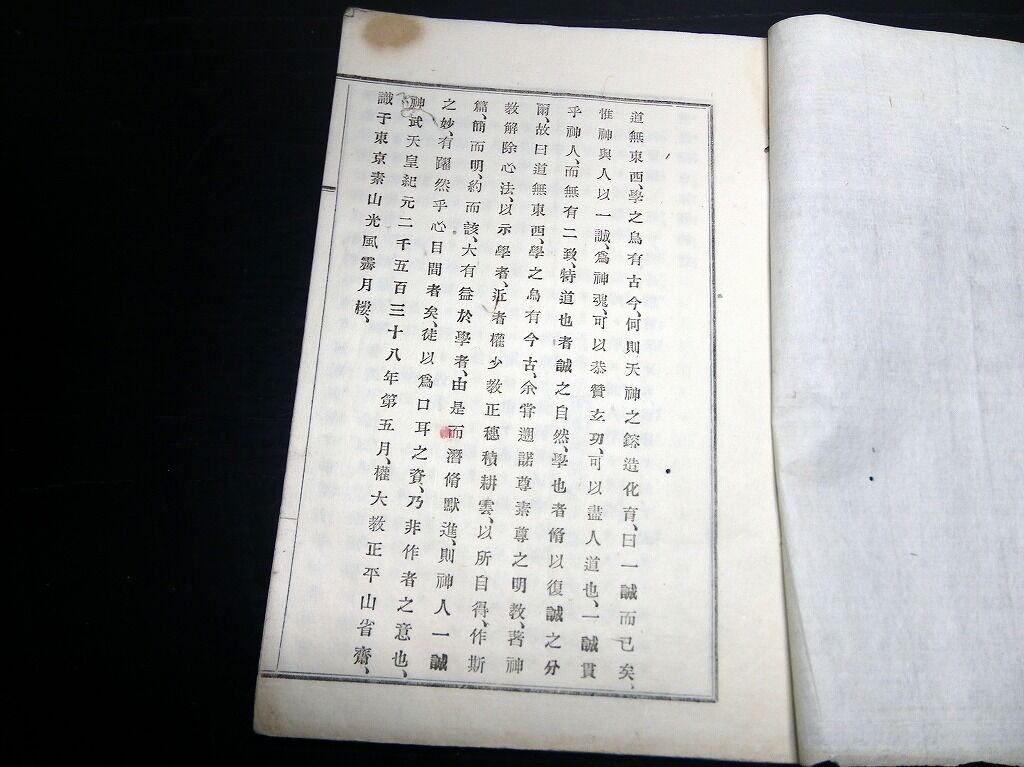 道無東西、學之烏有古今、何則天神之鎔造化育、曰一誠而已矣、
惟神與人以一誠、爲神魂、可以恭贊玄功、可以盡人道也、一誠貫
乎神人、而無有二致、特道也者誠之自然、學也者脩以復誠之分
爾、故曰道無東西、學之烏有今古、余嘗遡諾尊素尊之明教、著神
教解除心法、以示學者、近者權少教正穗積耕雲、以所自得、作斯
篇、簡而明、約而該、大有益於學者、由是而潛脩默進、則神人一誠
之妙、有躍然乎心目間者矣、徒以爲口耳之資、乃非作者之意也、
神武天皇紀元二千五百三十八年第五月、權大教正平山省齋、
識于東京素山光風霽月樓、